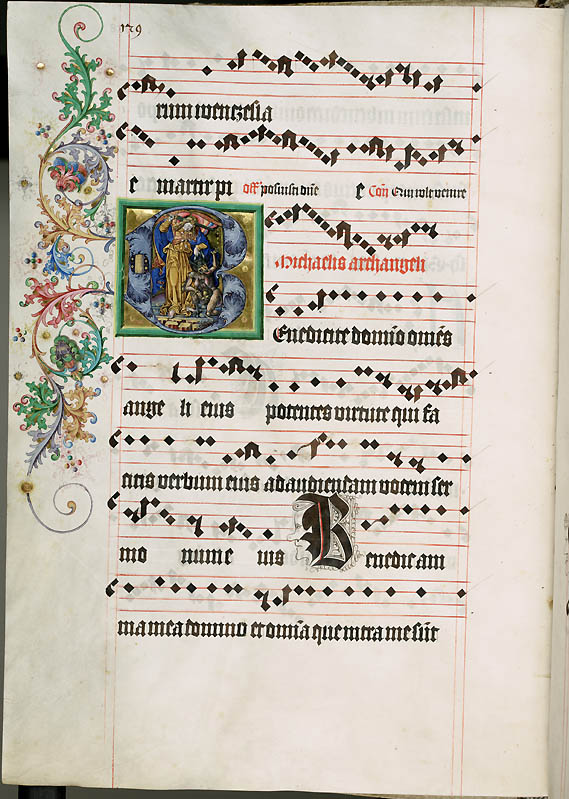 179
rum wenczesla
e martir pi off posuisti dne e Com Qui vole venire
Michaelis archangeli
Benedicite domino omes
ange li eius potentes virtute qui fa
citis verbum eius ad audiendam vocem ser
mo num e ius Benedic am
ma mea domino et omia que intra me sunt